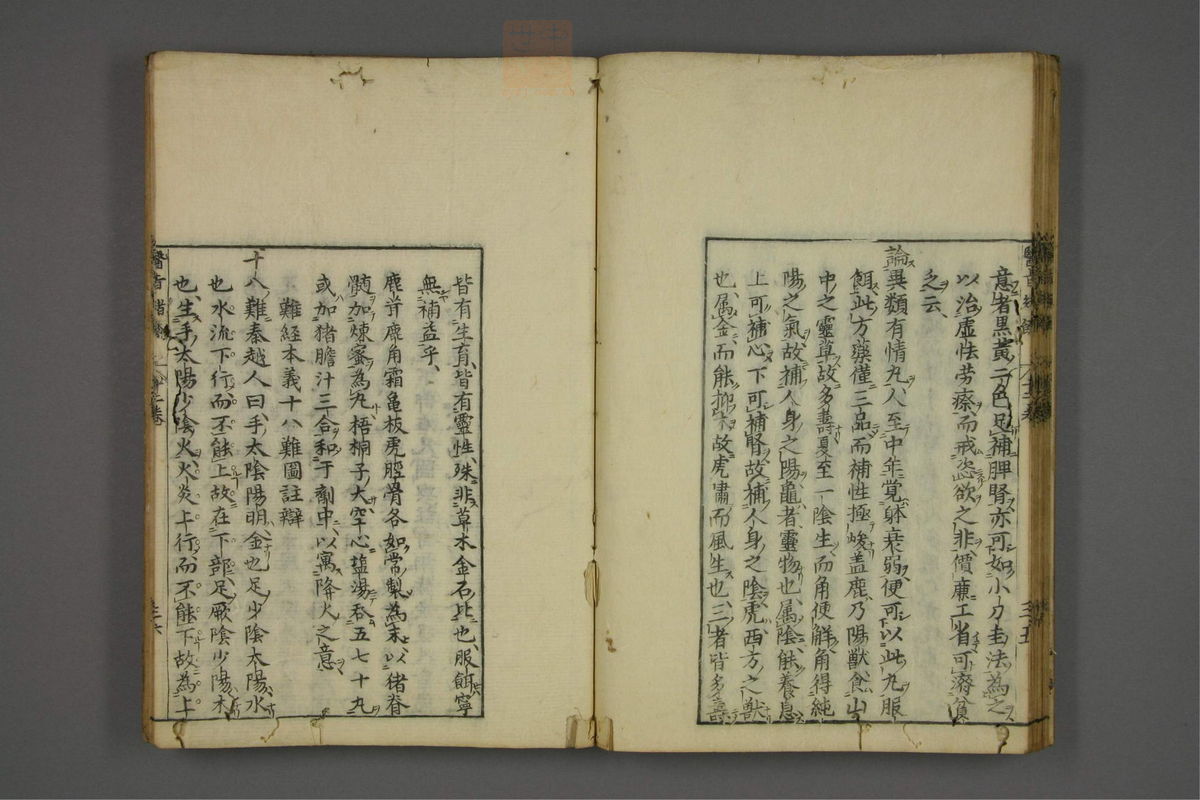 意者黒黃二色足補脾腎亦可如小刀圭法為之
以治虛怯劳瘵而戒恣欲之非價廉工省可濟貧
之云
論異類有情丸人至中年覚躰衰弱便可以此丸服
餌此方藥僅三品而補性極峻盖鹿乃陽獣食山
中之靈草故多壽夏至一陰生而角使解角得純
陽之氣故補人身之陽龜者靈物也属陰能養息
上可補心下可補腎故補人身之陰虎西方之獣
也属金而能抑木故虎嘯而風生也三者皆多壽
皆有生育皆有靈性殊非草木金石比也服餌寧
無補益乎
鹿茸鹿角霜亀板虎脛骨各如常製為末以猪脊
髄加煉蜜為丸梧桐子大空心塩湯吞五七十丸
或加猪膽汁三合和于劑中以寓降火之意
難経本義十八難圖註辯
十八難秦越人曰手太陰陽明金也足少陰太陽水
也水流下行而不能上故在下部足厥陰少陽木
也生手太陽少陰火火炎上行而不能下故為上
三十六